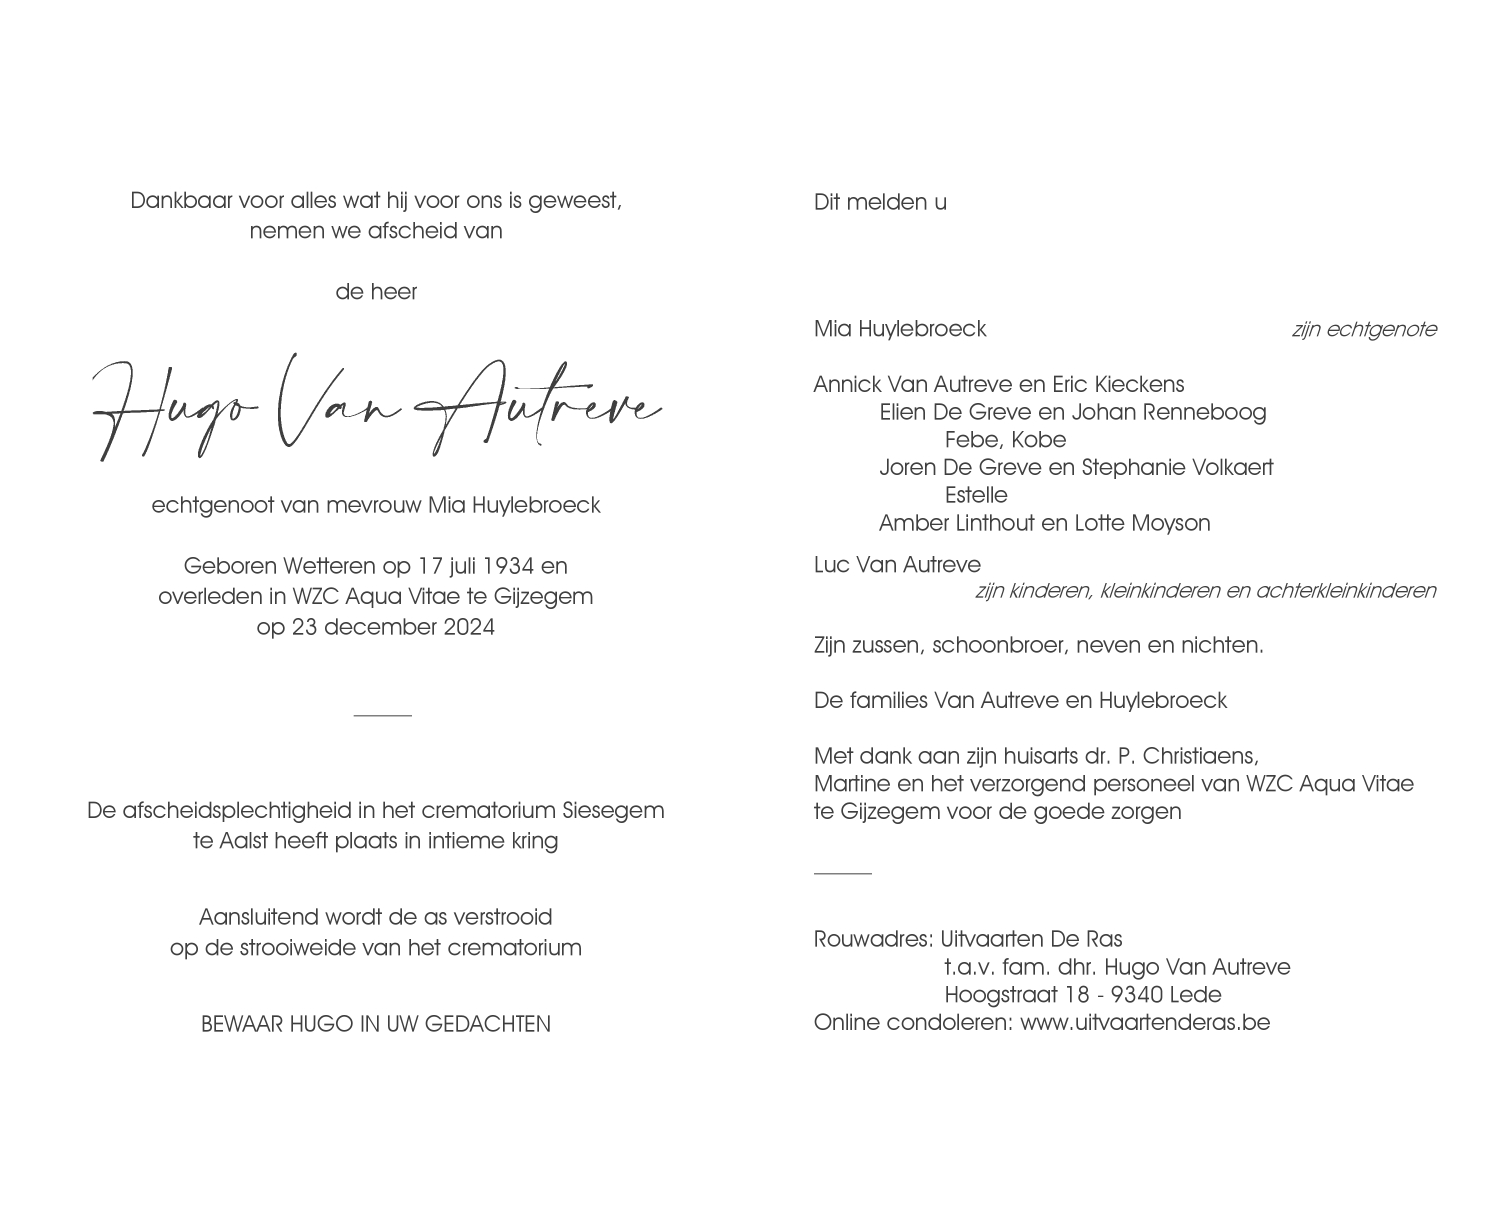 Dankbaar voor alles wat hij voor ons is geweest,
nemen we afscheid van
de heer
Hugo Van Autreve
echtgenoot van mevrouw Mia Huylebroeck
Geboren Wetteren op 17 juli 1934 en
overleden in WZC Aqua Vitae te Gijzegem
op 23 december 2024
De afscheidsplechtigheid in het crematorium Siesegem
te Aalst heeft plaats in intieme kring
Aansluitend wordt de as verstrooid
op de strooiweide van het crematorium
BEWAAR HUGO IN UW GEDACHTEN
Dit melden u
Mia Huylebroeck zijn echtgenote
Annick Van Autreve en Eric Kieckens
Elien De Greve en Johan Renneboog
Febe, Kobe
Joren De Greve en Stephanie Volkaert
Estelle
Amber Linthout en Lotte Moyson
Luc Van Autreve
zijn kinderen, kleinkinderen en achterkleinkinderen
Zijn zussen, schoonbroer, neven en nichten.
De families Van Autreve en Huylebroeck
Met dank aan zijn huisarts dr. P. Christiaens,
Martine en het verzorgend personeel van WZC Aqua Vitae
te Gijzegem voor de goede zorgen
Rouwadres: Uitvaarten De Ras
t.a.v. fam. dhr. Hugo Van Autreve
Hoogstraat 18 - 9340 Lede
Online condoleren: www.uitvaartenderas.be